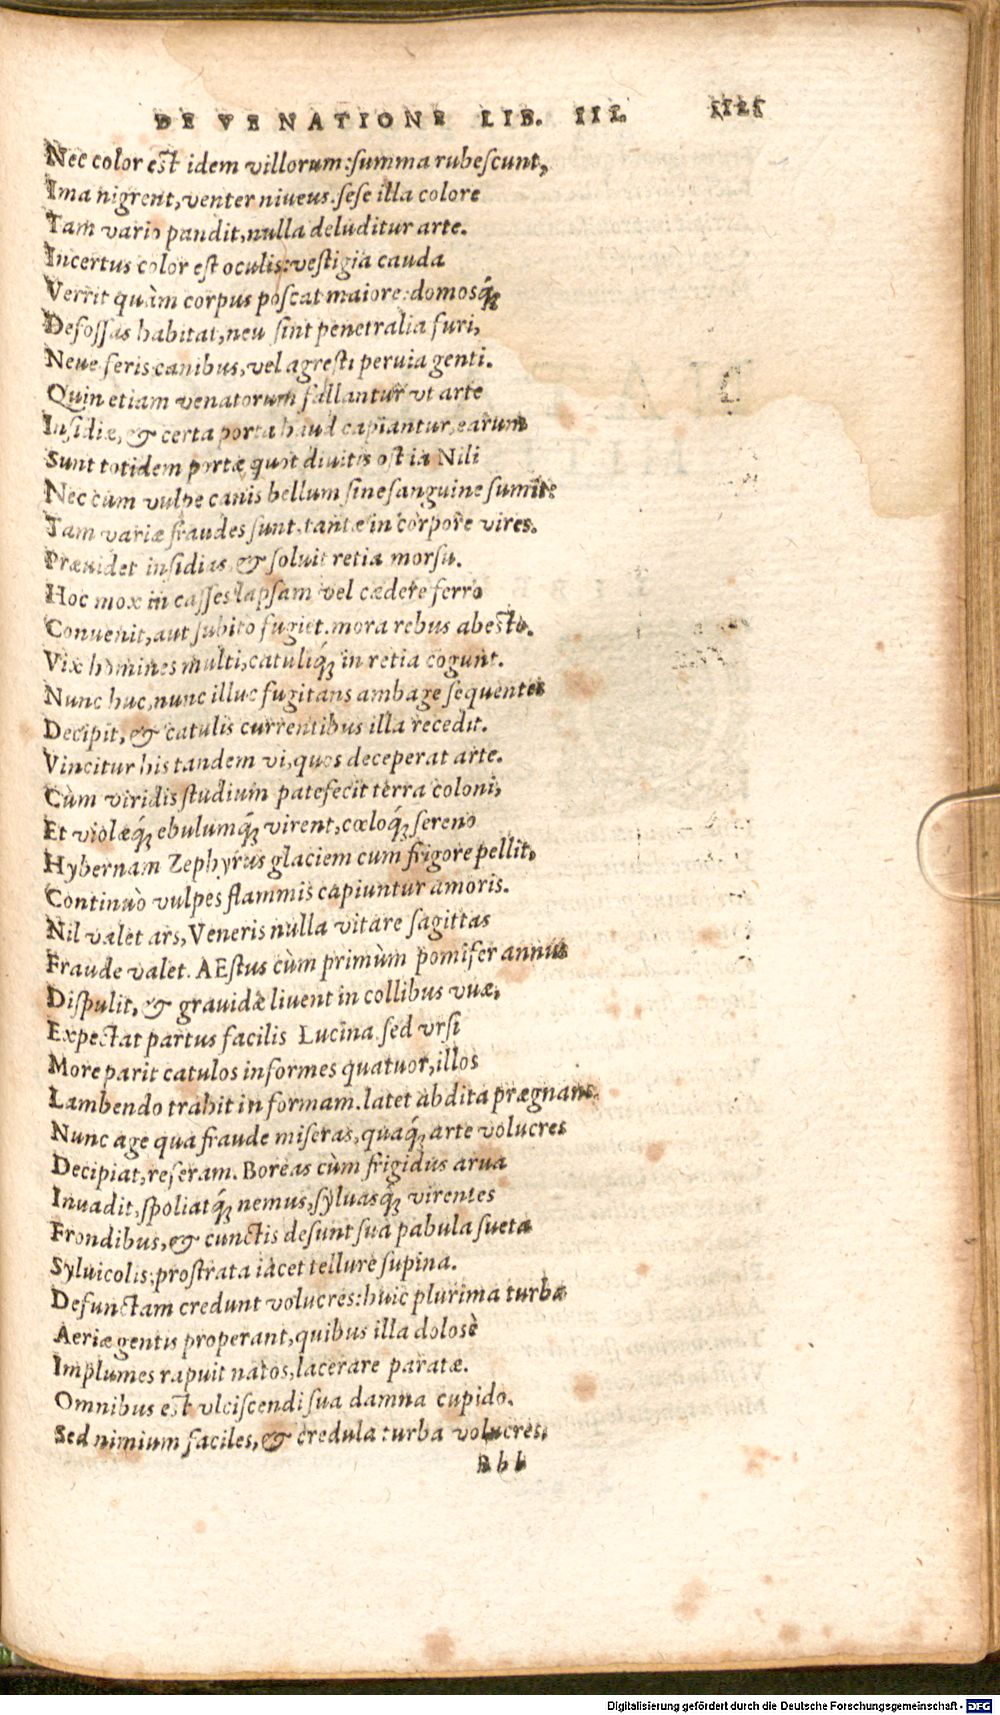 DE VENATIONE LIB. III.
Nec color est idem villorum: summa rubescunt,
Ima nigrent, venter niueus. sese illa colore
Tam vario pandit, nulla deluditur arte.
Incertus color est oculis: vestigia cauda
Verrit quàm corpus poscat maiore: domosq́;
Defossas habitat, neu sint penetralia furi,
Neue feris canibus, vel agresti peruia genti.
Quin etiam venatorum fallantur vt arte
Insidiæ, & certa porta haud capiantur, earum
Sunt totidem portæ quot diuitis ostia Nili
Nec cum vulpe canis bellum sine sanguine sumit:
Tam variæ fraudes sunt, tantæ in corpore vires.
Præuidet insidias, & soluit retia morsu.
Hoc mox in casses lapsam vel cædere ferro
Conuenit, aut subito fugiet. mora rebus abesto.
Vix homines multi, catuliq́; in retia cogunt.
Nunc huc, nunc illuc fugitans ambage sequentes
Decipit, & catulis currentibus illa recedit.
Vincitur his tandem vi, quos deceperat arte.
Cùm viridis studium patefecit terra coloni,
Et violæq́; ebulumq́; virent, cœloq́; sereno
Hybernam Zephyrus glaciem cum frigore pellit,
Continuò vulpes flammis capiuntur amoris.
Nil valet ars, Veneris nulla vitare sagittas
Fraude valet. AEstus cùm primùm pomifer annus
Dispulit, & grauidæ liuent in collibus vuæ,
Expectat partus facilis Lucina sed vrsi
More parit catulos informes quatuor, illos
Lambendo trahit in formam. latet abdita prægnans.
Nunc age qua fraude miseras, quaq́; arte volucres
Decipiat, reseram. Boreas cùm frigidus arua
Inuadit, spoliatq́; nemus, syluasq́; virentes
Frondibus, & cunctis desunt sua pabula sueta
Syluicolis; prostrata iacet tellure supina.
Defunctam credunt volucres: huic plurima turba
Aeriæ gentis properant, quibus illa dolosè
Implumes rapuit natos, lacerare paratæ.
Omnibus est vlciscendi sua damna cupido.
Sed nimium faciles, & credula turba volucres,
Bbb
Digitalisierung gefördert durch die Deutsche Forschungsgemeinschaft - DFG